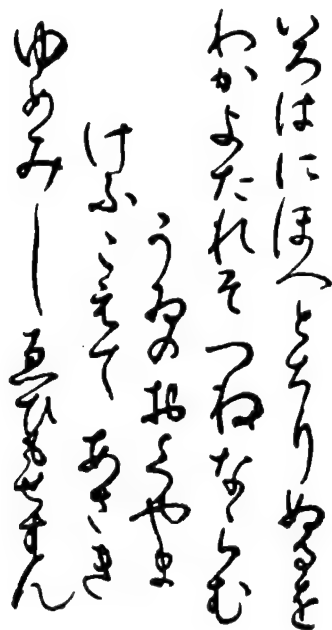 いろはにほへとちりぬるを
わかよたれそつねならむ
うゐのおくやま
けふこえてあさき
ゆめみしゑひもせすん